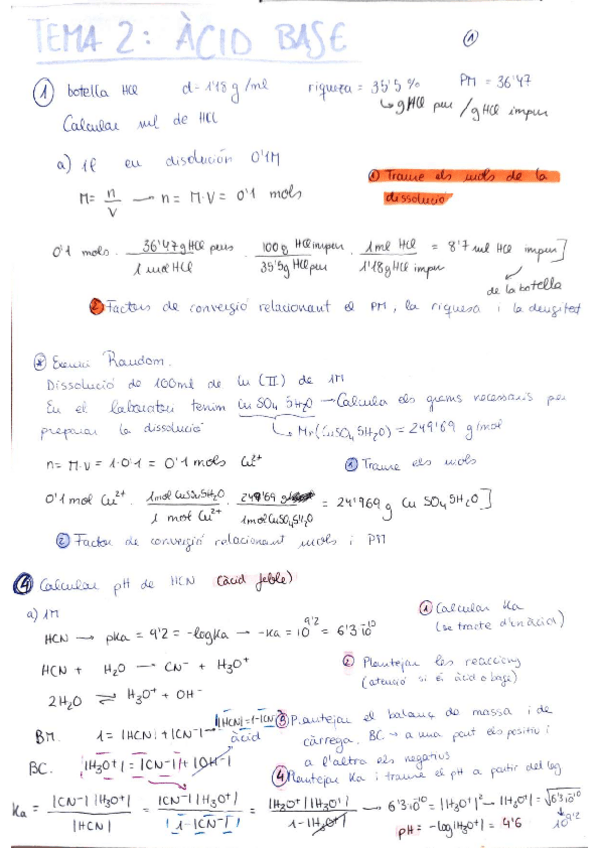 TEMA 2: ÀCID BASE
1
1 botella HCl d= 1'18 g/ml riqueza = 35'5 % PM = 36'47
↳ gHCl pur /gHCl impur
Calcular ml de HCl
a) 1l en disolución 0'1M
1 Traure els mols de la dissolució
M= n/V → n= M·V = 0'1 mols
0'1 mols · 36'47gHCl purs / 1 mol HCl · 100g HCl impur / 35'5g HCl pur · 1ml HCl / 1'18g HCl impur = 8'7 ml HCl impur]
de la botella
2 Factors de conversió relacionant el PM, la riquesa i la densitat
* Exercici Random.
Dissolució de 100ml de Cu (II) de 1M
En el laboratori tenim CuSO4 5H2O → Calcula els grams necessaris per
preparar la dissolució
↳ Mr(CuSO4 5H2O) = 249'69 g/mol
n= M·V = 1·0'1 = 0'1 mols Cu2+
1 Traure els mols
0'1 mol Cu2+ · 1mol CuSO4 5H2O / 1 mol Cu2+ · 249'69 g / 1mol CuSO4 5H2O = 24'969 g CuSO4 5H2O]
2 Factor de conversió relacionant mols i PM
4 Calcular pH de HCN (àcid feble)
a) 1M
1 Calcular Ka
(se tracte d'un àcid)
HCN → pKa = 9'2 = -logKa → -Ka = 10^9'2 = 6'3·10^-10
HCN + H2O → CN- + H3O+
2 Plantejar les reaccions
(atenció si és àcid o base)
2H2O ⇌ H3O+ + OH-
BM. 1 = |HCN| + |CN-| → |HCN| = 1-|CN-|
àcid
3 Plantejar el balanç de massa i de
càrrega. BC → a una part els positius i
a l'altra els negatius
BC. |H3O+| = |CN-| + |OH-|
4 Plantejar Ka i traure el pH a partir del log
Ka = |CN-| |H3O+| / |HCN| = |CN-| |H3O+| / |1-|CN-|| = |H3O+| |H3O+| / 1-|H3O+| → 6'3·10^-10 = |H3O+|^2 → |H3O+| = √6'3·10^-10
pH = -log|H3O+| = 4'6
10^9'2